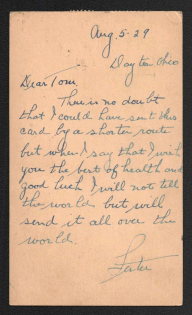 Aug. 5-29
Dayton, Ohio
Dear Tom
There is no doubt
that I could have sent this
card by a shorter route
but when I say that I wish
you the best of health and
good luck I will not tell
the world but will
send it all over the
world.